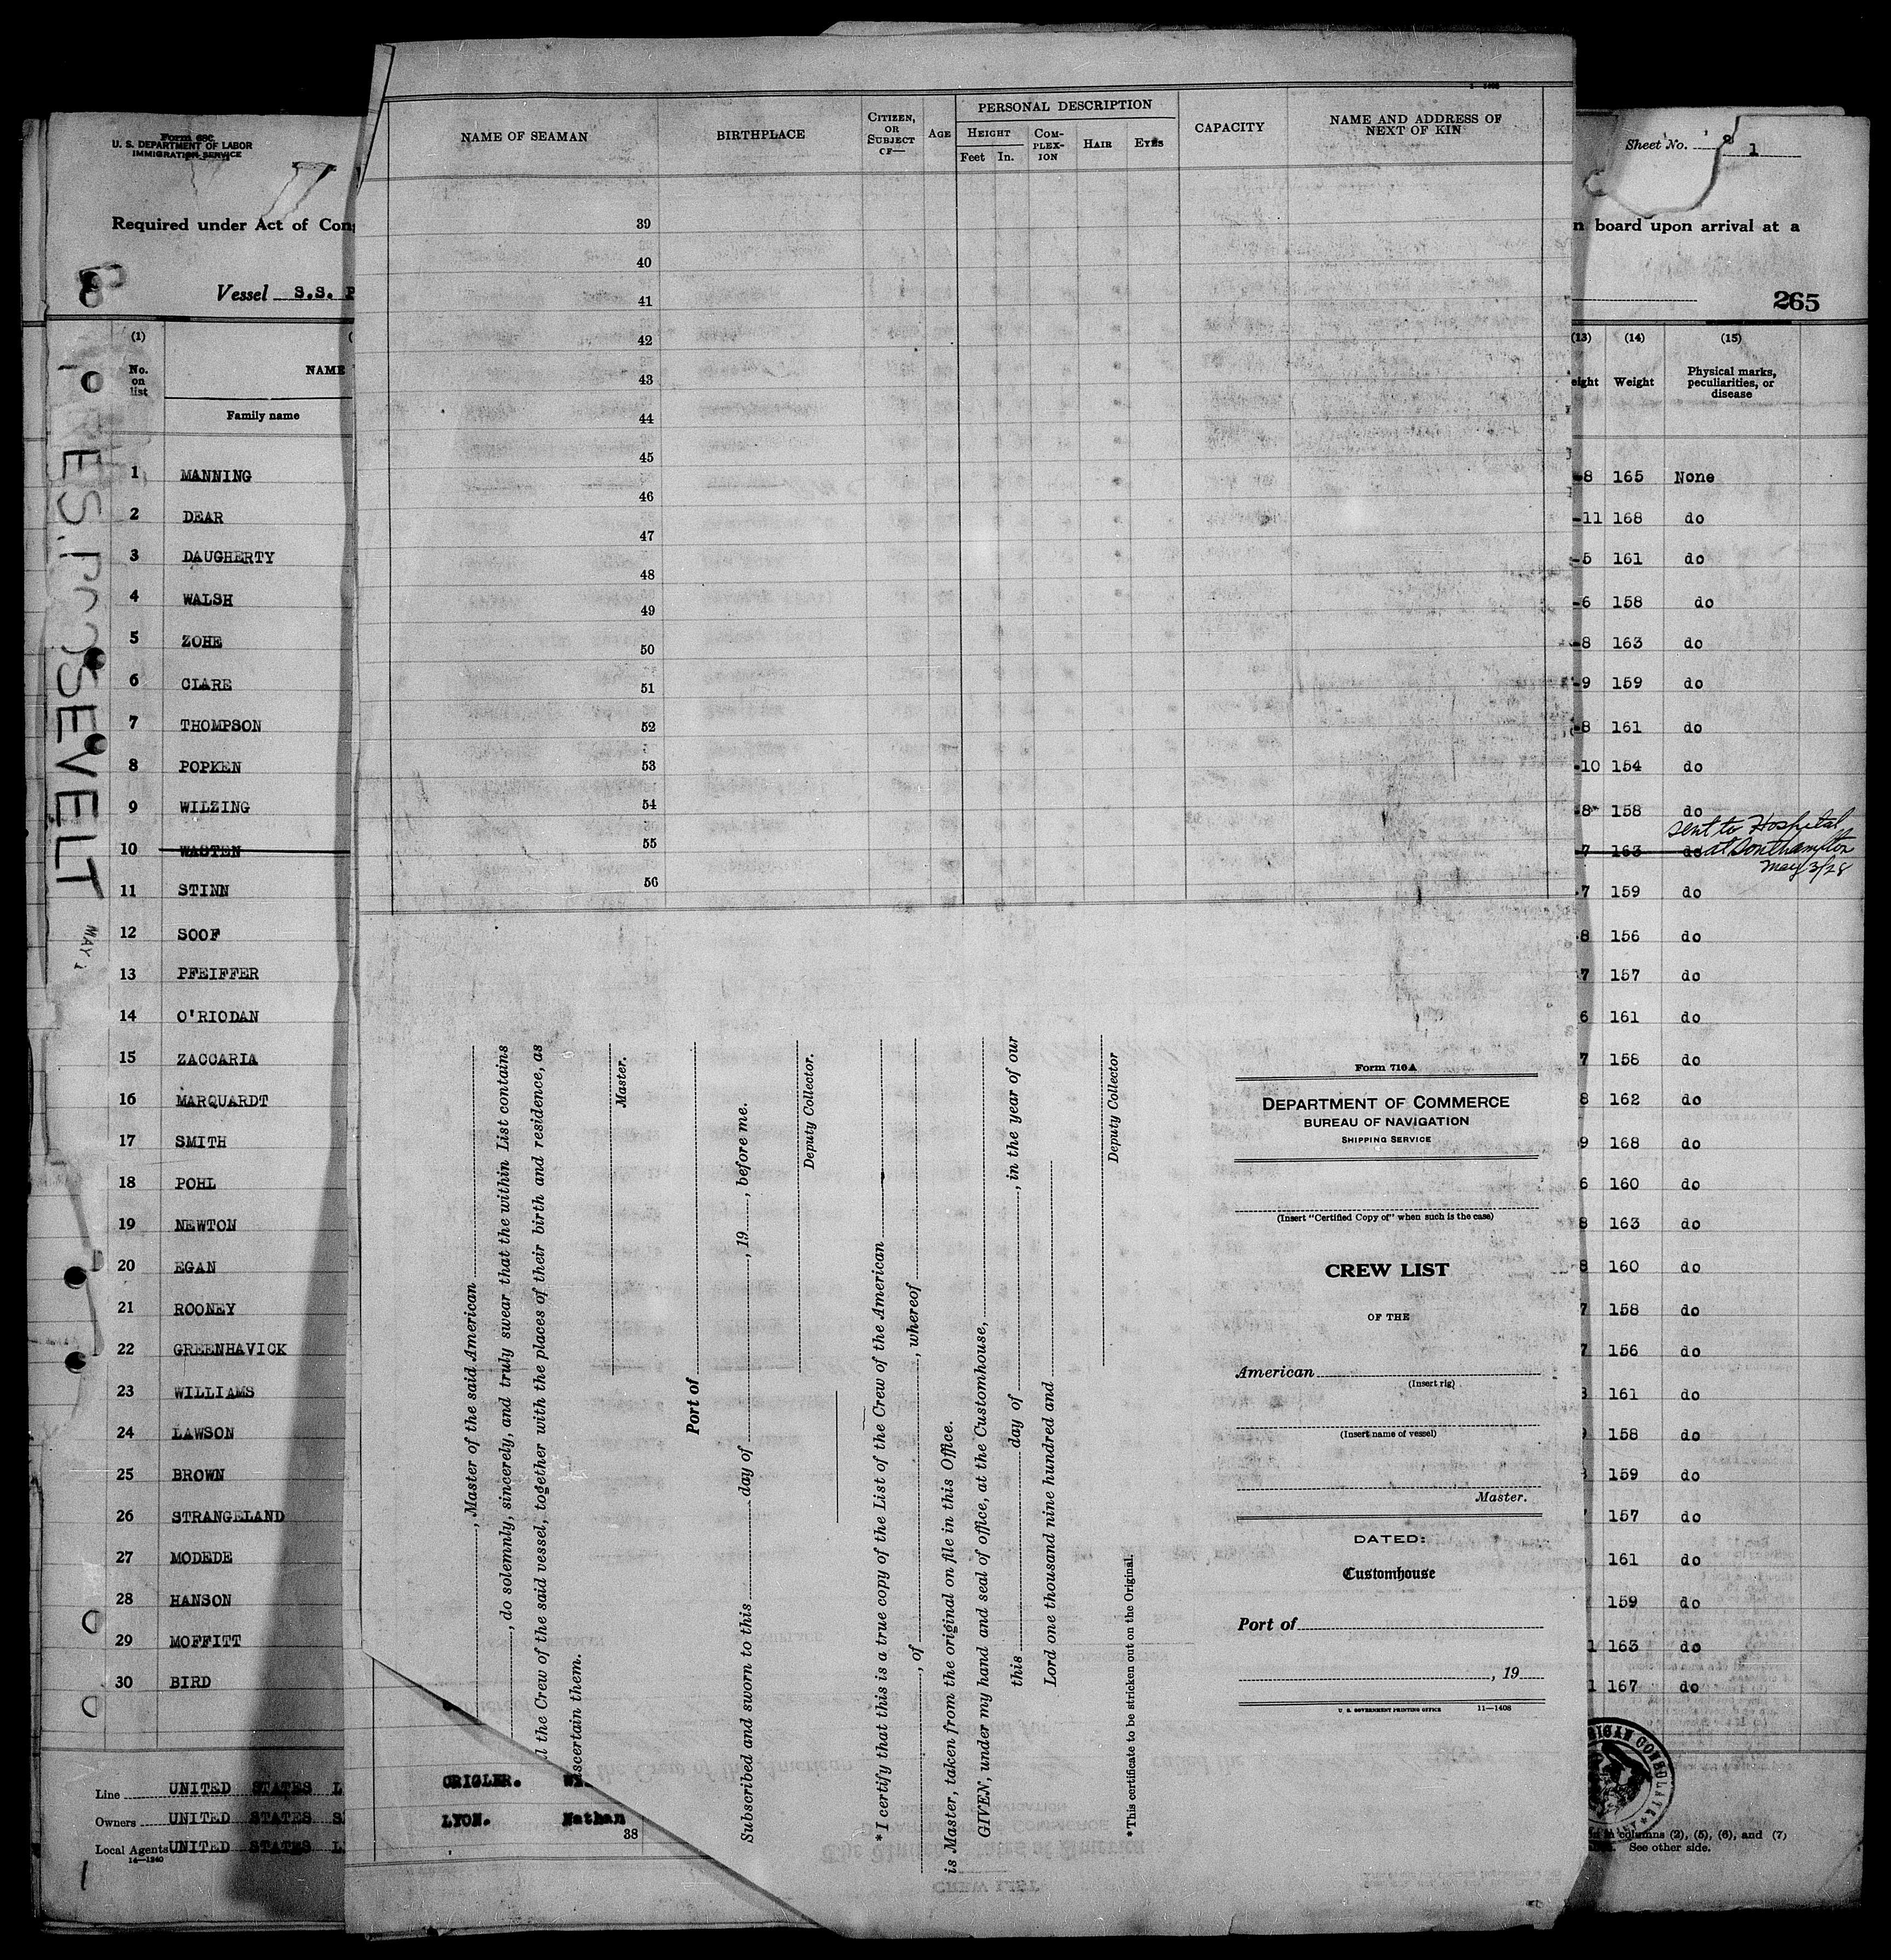 Form 680
U. S. DEPARTMENT OF LABOR
IMMIGRATION SERVICE
Required under Act of Cong
Vessel S.S. P
Sheet No. 8 1
n board upon arrival at a
265
(1)
No. on list
NAME
Family name
(13) (14) (15)
eight Weight Physical marks, peculiarities, or disease
1 MANNING -8 165 None
2 DEAR -11 168 do
3 DAUGHERTY -5 161 do
4 WALSH -6 158 do
5 ZOHE -8 163 do
6 CLARE -9 159 do
7 THOMPSON -8 161 do
8 POPKEN -10 154 do
9 WILZING -8 158 do
10 WASTEN 7 163 do
sent to Hospital
at Southampton
May 3/28
11 STINN 7 159 do
12 SOOF 8 156 do
13 PFEIFFER 7 157 do
14 O'RIODAN 6 161 do
15 ZACCARIA 7 158 do
16 MARQUARDT 8 162 do
17 SMITH 9 168 do
18 POHL 6 160 do
19 NEWTON 8 163 do
20 EGAN 8 160 do
21 ROONEY 7 158 do
22 GREENHAVICK 7 156 do
23 WILLIAMS 161 do
24 LAWSON 158 do
25 BROWN 159 do
26 STRANGELAND 157 do
27 MODEDE 161 do
28 HANSON 159 do
29 MOFFITT 1 163 do
30 BIRD 1 167 do
Line UNITED STATES L
Owners UNITED STATES S
Local Agents UNITED STATES L
14—1240
PRES. ROOSEVELT
MAY 1
NAME OF SEAMAN
BIRTHPLACE
CITIZEN, OR SUBJECT OF—
AGE
PERSONAL DESCRIPTION
HEIGHT
Feet In.
COM-PLEX-ION
HAIR
EYES
CAPACITY
NAME AND ADDRESS OF NEXT OF KIN
39
40
41
42
43
44
45
46
47
48
49
50
51
52
53
54
55
56
, Master of the said American
, do solemnly, sincerely, and truly swear that the within List contains
l the Crew of the said vessel, together with the places of their birth and residence, as
ascertain them.
Master.
Port of
Subscribed and sworn to this day of , 19 , before me.
Deputy Collector.
*I certify that this is a true copy of the List of the Crew of the American
, of , whereof
is Master, taken from the original on file in this Office.
GIVEN, under my hand and seal of office, at the Customhouse,
this day of , in the year of our
Lord one thousand nine hundred and
Deputy Collector
*This certificate to be stricken out on the Original.
Form 710A
DEPARTMENT OF COMMERCE
BUREAU OF NAVIGATION
SHIPPING SERVICE
(Insert "Certified Copy of" when such is the case)
CREW LIST
OF THE
American
(Insert rig)
(Insert name of vessel)
Master.
DATED:
Customhouse
Port of
, 19
U. S. GOVERNMENT PRINTING OFFICE 11—1408
CRIGLER.
LYON. Nathan
38
ICAN CONSULATE
in columns (2), (5), (6), and (7)
See other side.